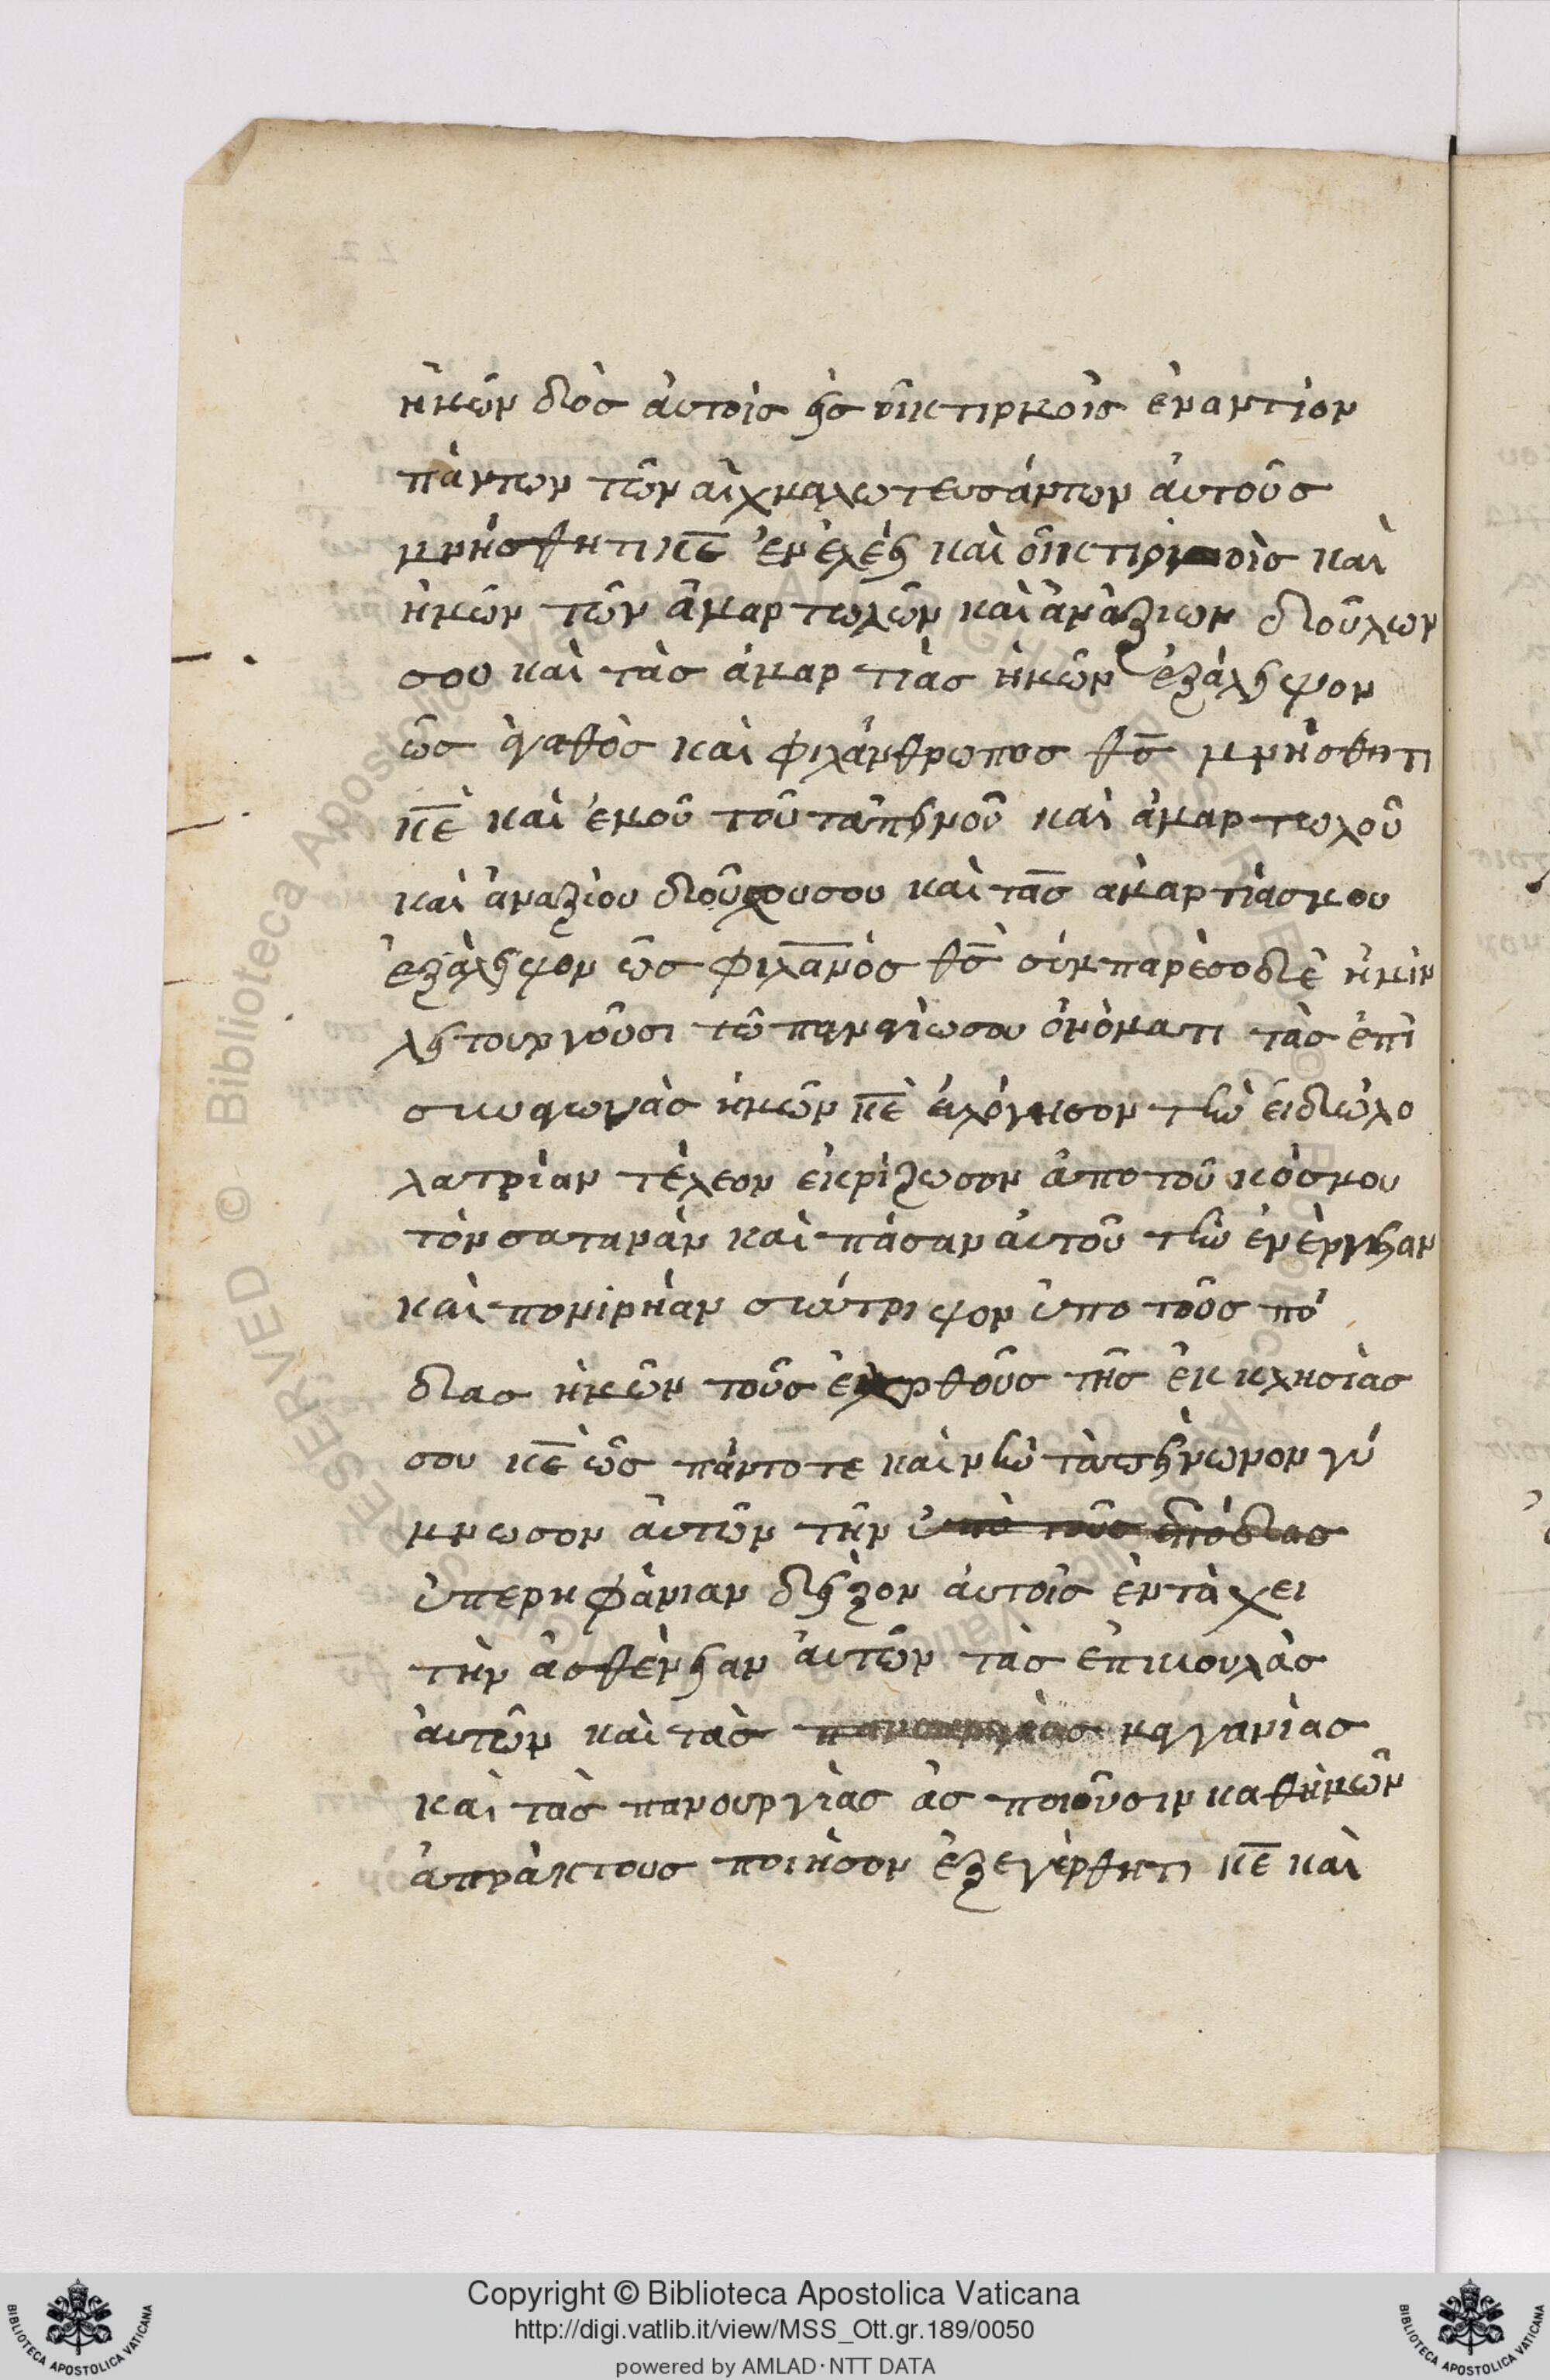 ἡμῶν δὸς ἀυτοὶς εἰς ὀικτιρμοὶς ἐναντίον
πάντων τῶν αἰχμαλωτευσάντων ἀυτοῦς
μνήσθητι κ̅ε̅ ἐν ἐλέει καὶ ὀικτιρμοὶς καὶ
ἡμῶν τῶν ἁμαρτωλῶν καὶ ἀναξίων δοῦλων
σου καὶ τὰς ἁμαρτίας ἡμῶν ἐξάλειψον
ὡς ἀγαθὸς καὶ φιλάνθρωπος θ̅ς̅ μνήσθητι
κ̅ε̅ καὶ ἐμοῦ τοῦ ταπεινοῦ καὶ ἁμαρτωλοῦ
καὶ ἀναξίου δοῦλου σου καὶ τὰς ἁμαρτίας μου
ἐξάλειψον ὡς φιλα̅νός θ̅ς̅ σύμπαρέσο δὲ ἡμὶν
λειτουργοῦσι τῶ παναγίω σου ὀνόματι τὰς ἐπὶ
συναγωγὰς ἡμῶν κ̅ε̅ ἐυλόγησον τὴν ειδωλο
λατρίαν τέλεον ἐκρίζωσον ἀπο τοῦ κόσμου
τὸν σατανὰν καὶ πάσαν ἀυτοῦ τὴν ἐνέργειαν
καὶ πονιρήαν σύντριψον ὑπο τοῦς πό
δας ἡμῶν τοῦς ἐχρθοῦς τῆς ἐκκλησίας
σου κ̅ε̅ ὡς πάντοτε καὶ νὺν ταπείνωνον γύ
μνωσον ἀυτῶν τὴν ὑπὸ τοῦς πόδας
ὑπερηφάνιαν δείξον ἀυτοὶς ἐν τάχει
τὴν ἀσθένειαν ἀυτῶν τὰς ἐπιβουλὰς
ἀυτῶν καὶ τὰς πανουργίας μαγανίας
καὶ τὰς πανουργίας ἁς ποιοῦσιν καθἡμῶν
ἀπράκτους ποιήσον ἐξεγέρθητι κ̅ε̅ καὶ
Copyright © Biblioteca Apostolica Vaticana
http://digi.vatlib.it/view/MSS_Ott.gr.189/0050
powered by AMLAD·NTT DATA